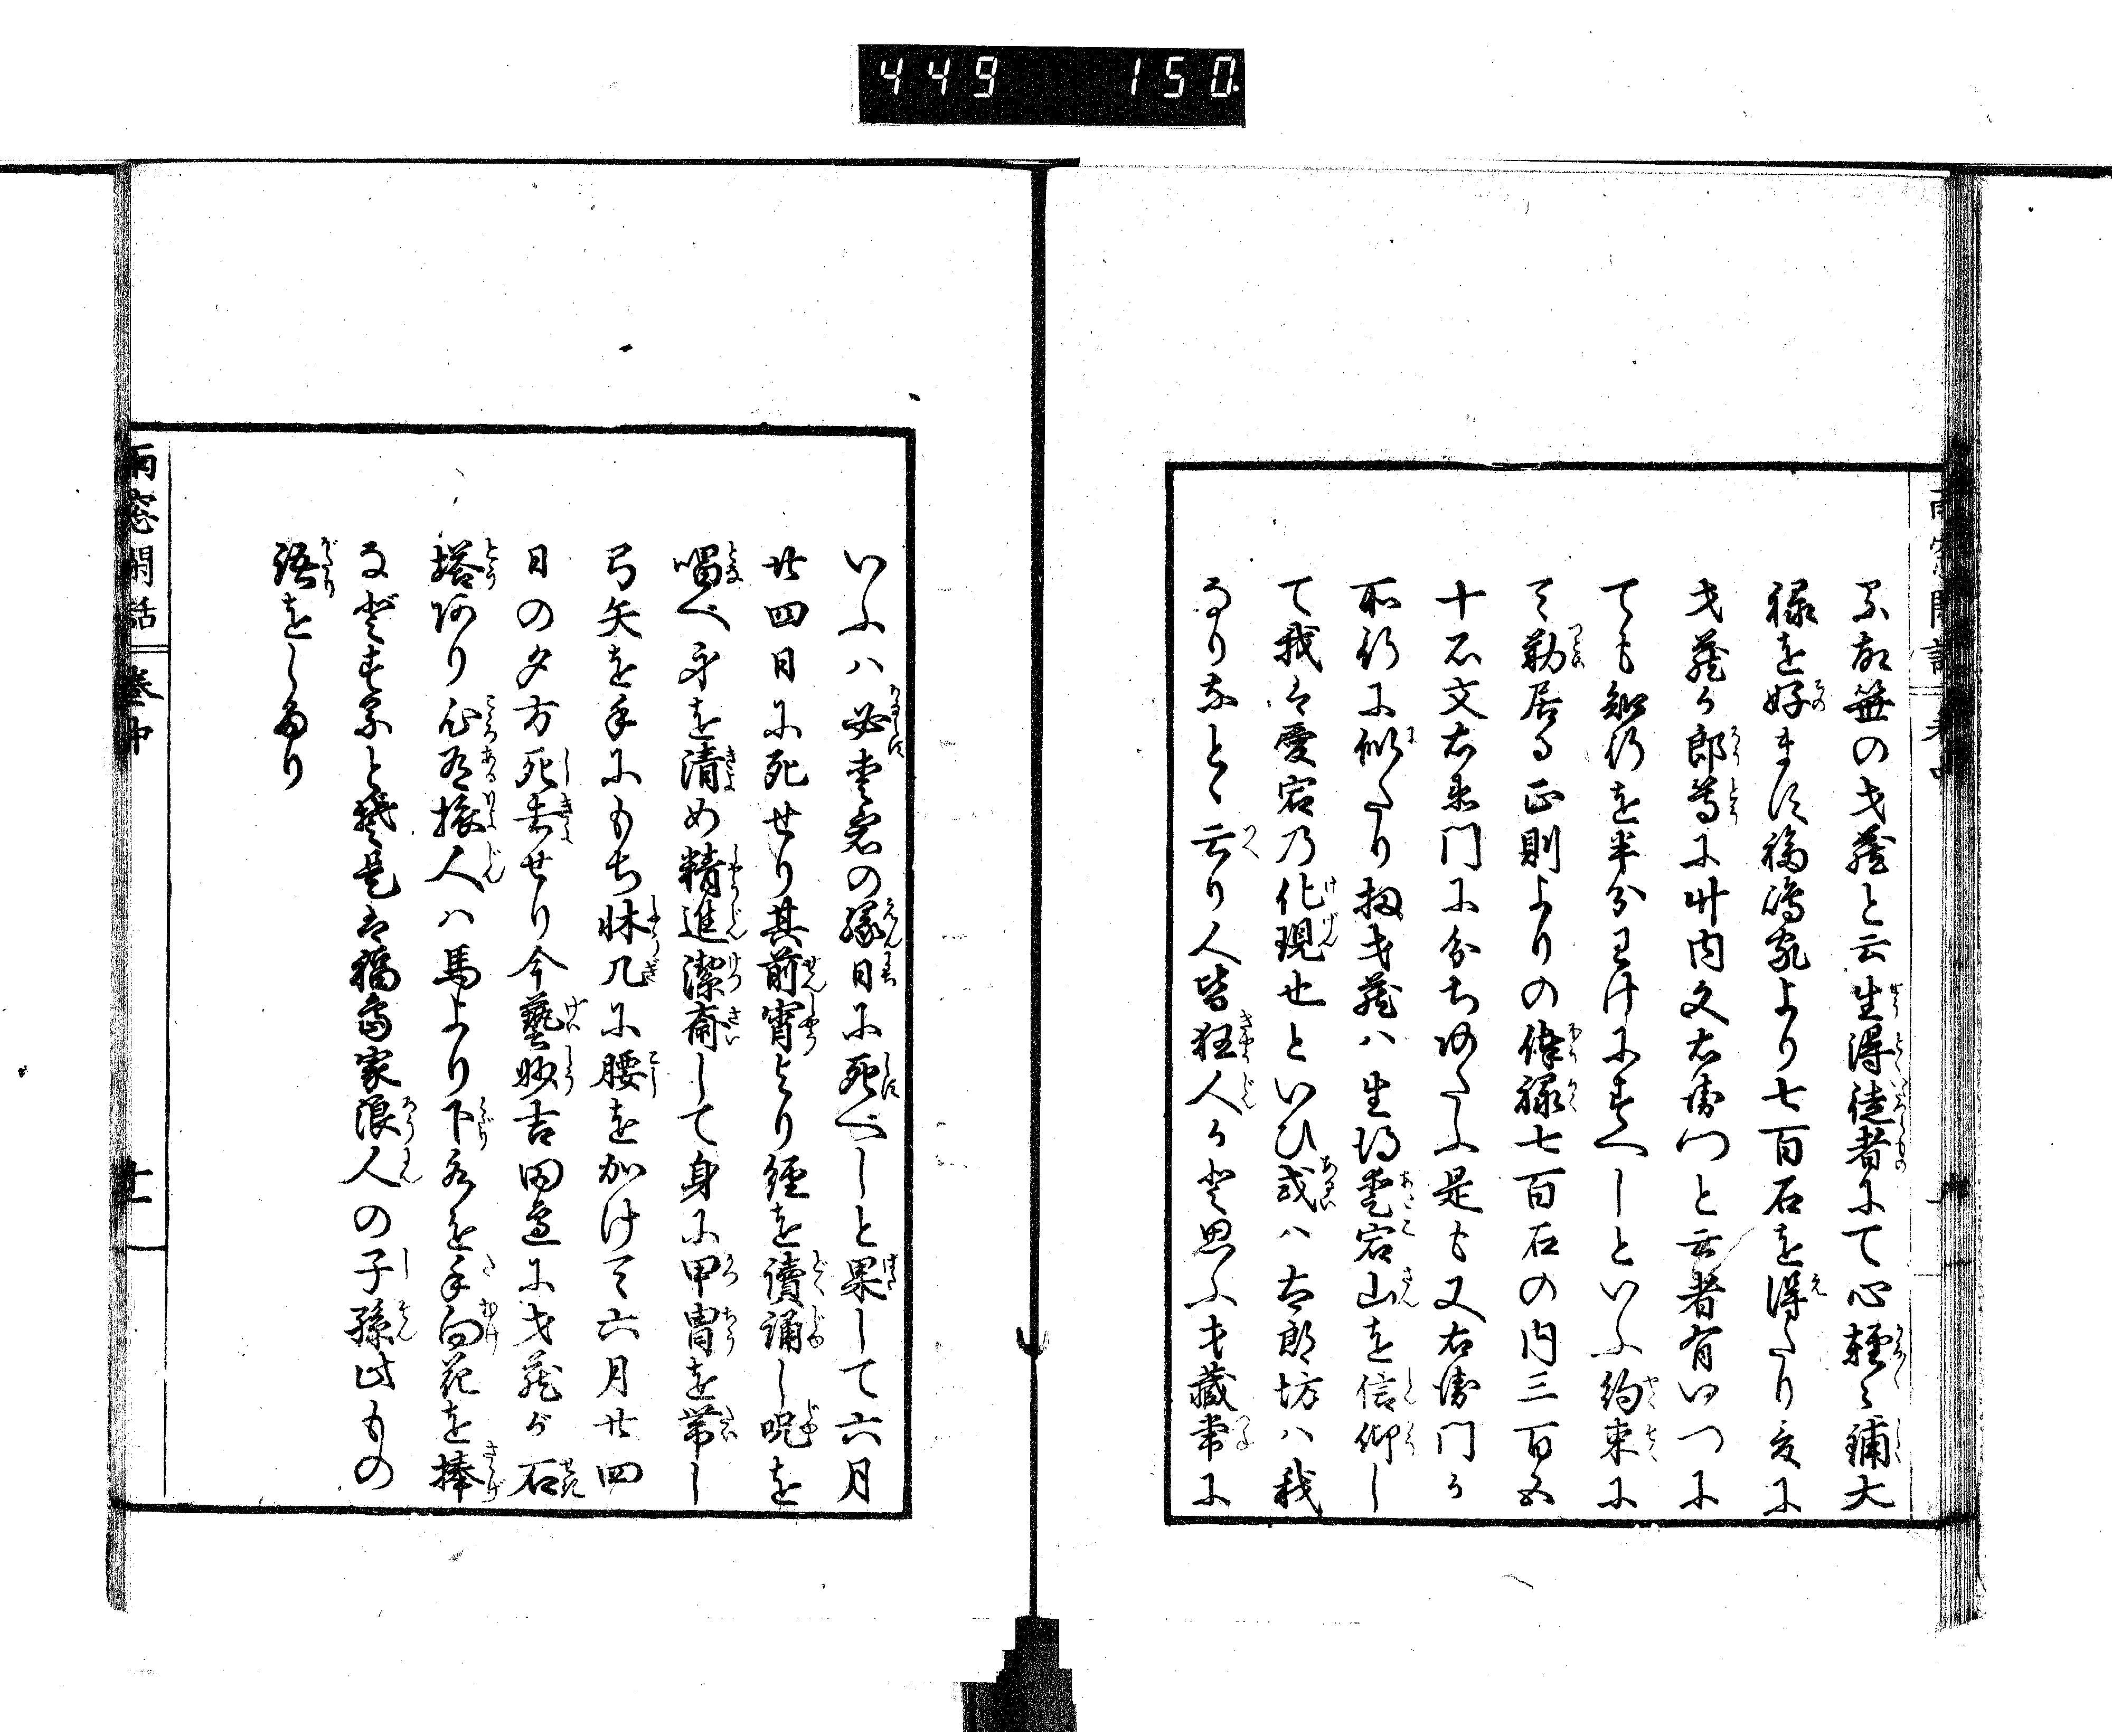 449 150
る故笹の才蔵と云生得徒者にて心軽く鋪大
禄を好ます福嶋家より七百石を得たり爰に
才蔵か郎等に竹内久右衛門と云者有いつに
ても知行を半分わけにすへしといふ約束に
て勤居る正則よりの俸禄七百石の内三百五
十石久右衛門に分ちあたふ是も又右衛門か
所行に似たり扨才蔵ハ生得愛宕山を信仰し
て我は愛宕の化現也といひ或ハ太郎坊ハ我
なりなとゝ云り人皆狂人かと思ふ才蔵常に
いふハ必愛宕の縁日に死へしと果して六月
廿四日に死せり其前宵より経を讀誦し呪を
唱へ身を清め精進潔齋して身に甲冑を帯し
弓矢を手にもち牀几に腰を加けて六月廿四
日の夕方死去せり今藝州吉田邉に才蔵が石
塔あり心有旅人ハ馬より下水を手向花を捧
などするとぞ是は福島家浪人の子孫此もの
語をしたり
雨窓閑話 巻中